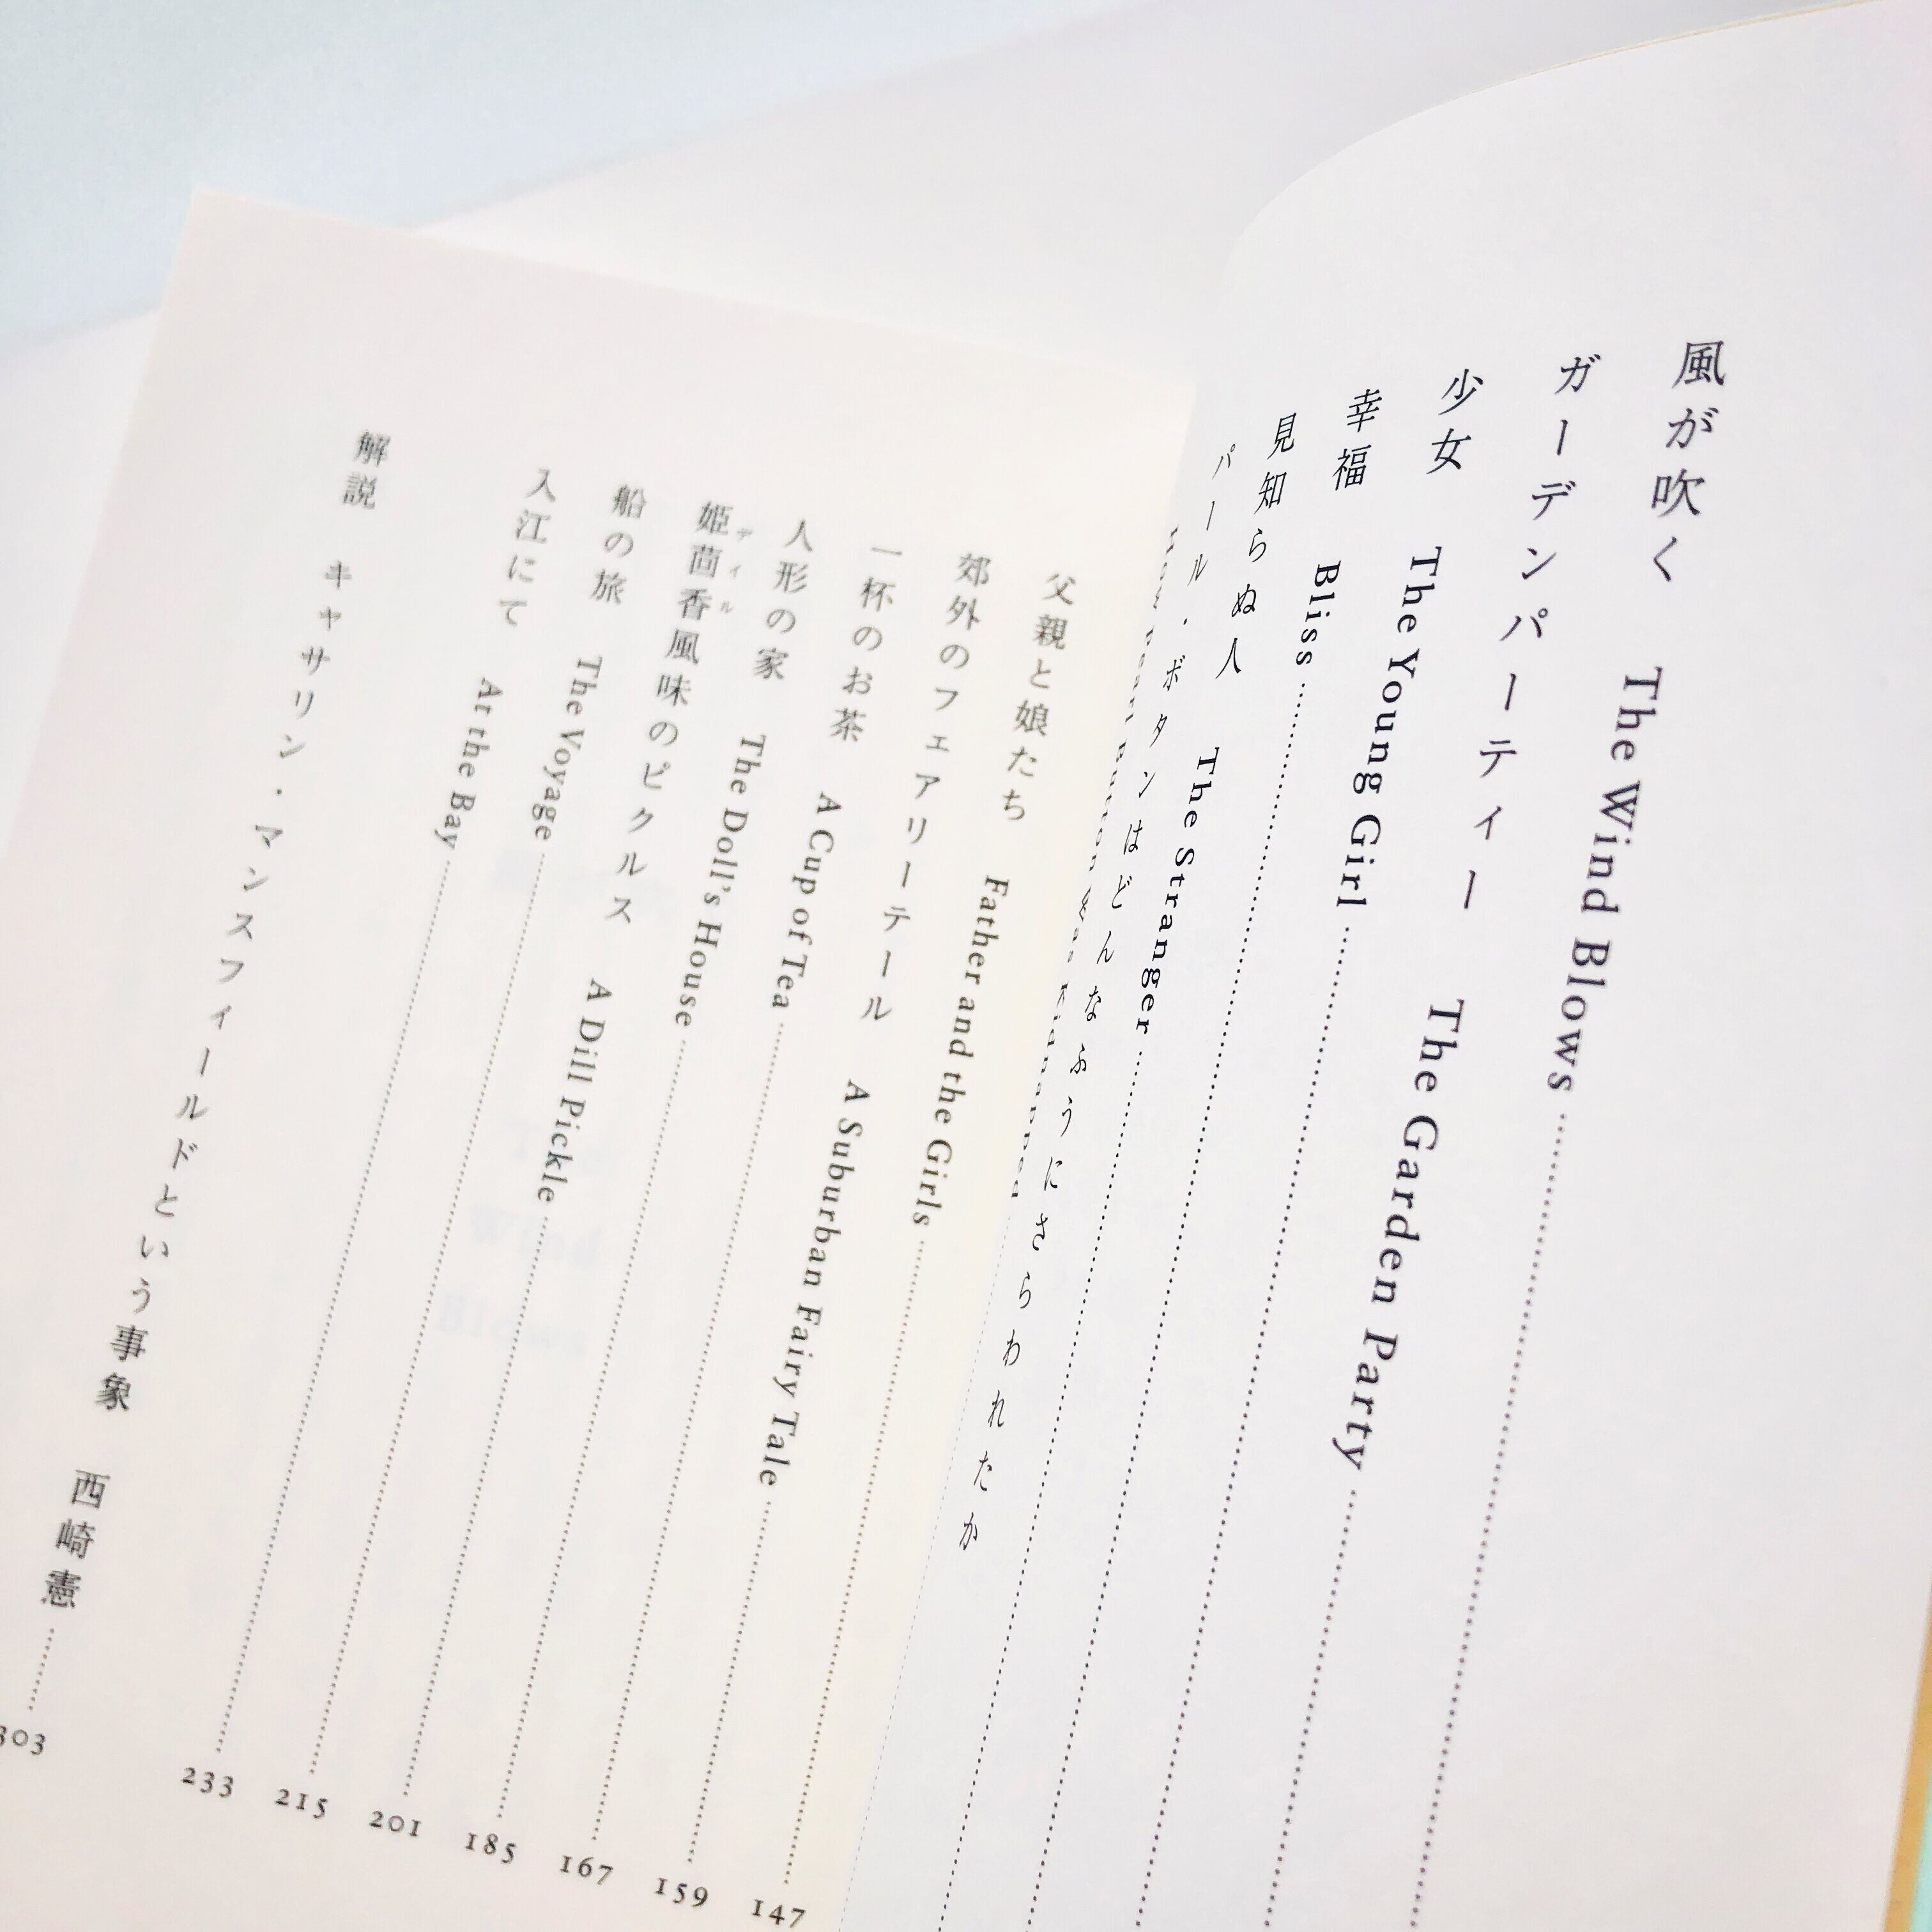 風が吹く The Wind Blows
ガーデンパーティー The Garden Party
少女 The Young Girl
幸福 Bliss
見知らぬ人 The Stranger
パール・ボタンはどんなふうにさらわれたか
How Pearl Button Was Kidnapped
父親と娘たち Father and the Girls 147
郊外のフェアリーテール A Suburban Fairy Tale 159
一杯のお茶 A Cup of Tea 167
人形の家 The Doll's House 185
姫茴香風味のピクルス A Dill Pickle 201
ディル
船の旅 The Voyage 215
入江にて At the Bay 233
解説 キャサリン・マンスフィールドという事象 西崎憲 303